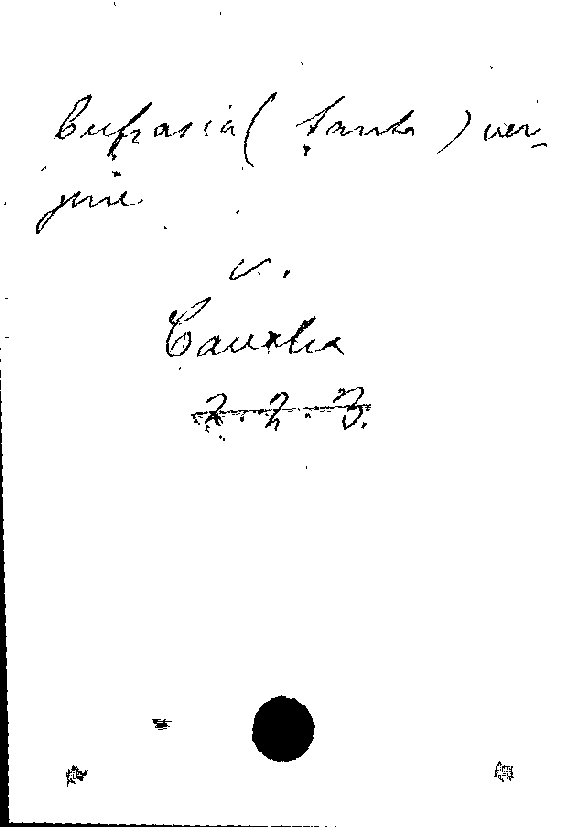 Eufrasia (Santa) ver-
gine
v.
Cavalca
2.2.3.